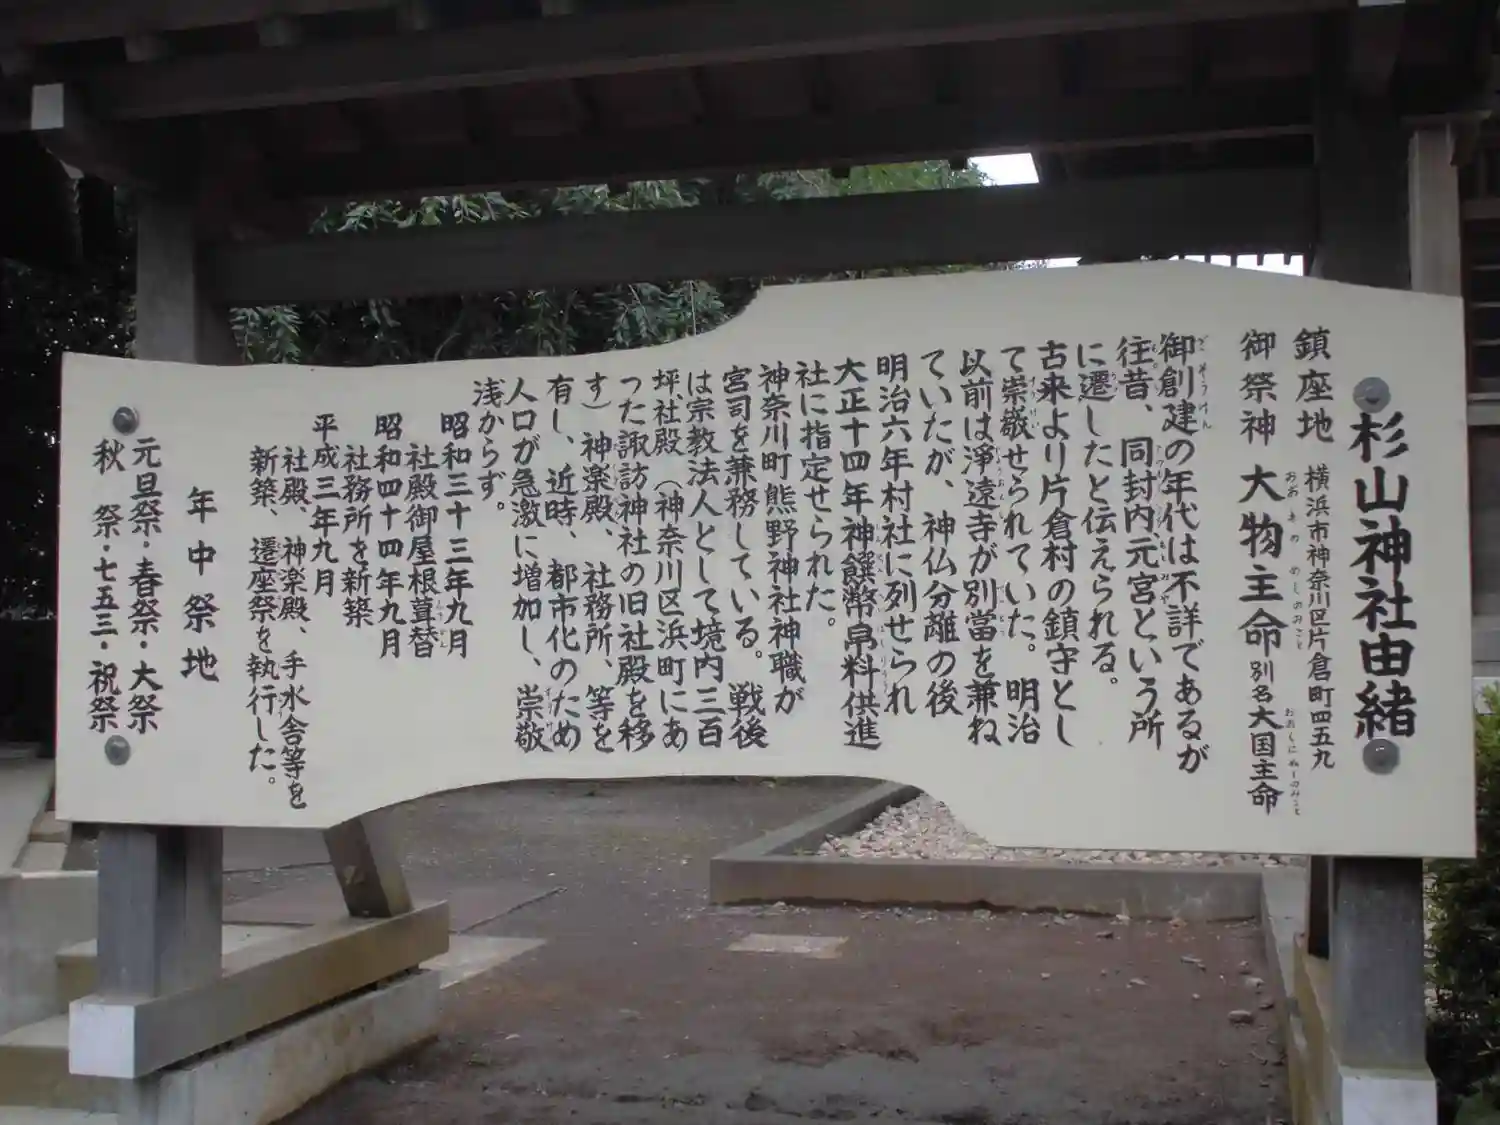 杉山神社由緒
鎮座地 横浜市神奈川区片倉町四五九
御祭神 大物主命 別名大国主命
御創建の年代は不詳であるが
往昔、同封内、元宮という所
に遷したと伝えられる。
古来より片倉村の鎮守とし
て崇敬せられていた。明治
以前は淨遠寺が別當を兼ね
ていたが、神仏分離の後
明治六年村社に列せられ
大正十四年神饌幣帛料供進
社に指定せられた。
神奈川町熊野神社神職が
宮司を兼務している。戦後
は宗教法人として境内三百
坪、社殿(神奈川区浜町にあ
った諏訪神社の旧社殿を移
す)神楽殿、社務所、等を
有し、近時、都市化のため
人口が急激に増加し、崇敬
浅からず。
昭和三十三年九月
社殿御屋根葺替
昭和四十四年九月
社務所を新築
平成三年九月
社殿、神楽殿、手水舎等を
新築、遷座祭を執行した。
年中祭地
元旦祭・春祭・大祭
秋祭・七五三・祝祭